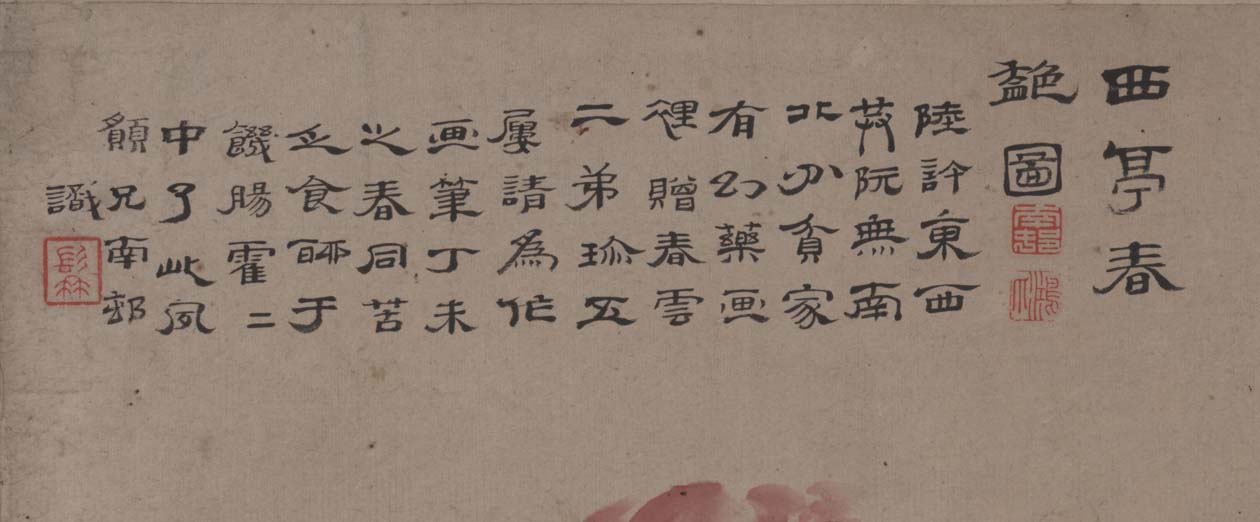 西亭春
豔圖
陸許東西
共阮無南
北分貧家
有幻藥画
裡贈春雲
二弟珍五
屢請為作
画筆丁未
之春同苦
乏食眎于
饑腸霍二
中了此夙
願兄南邨
識